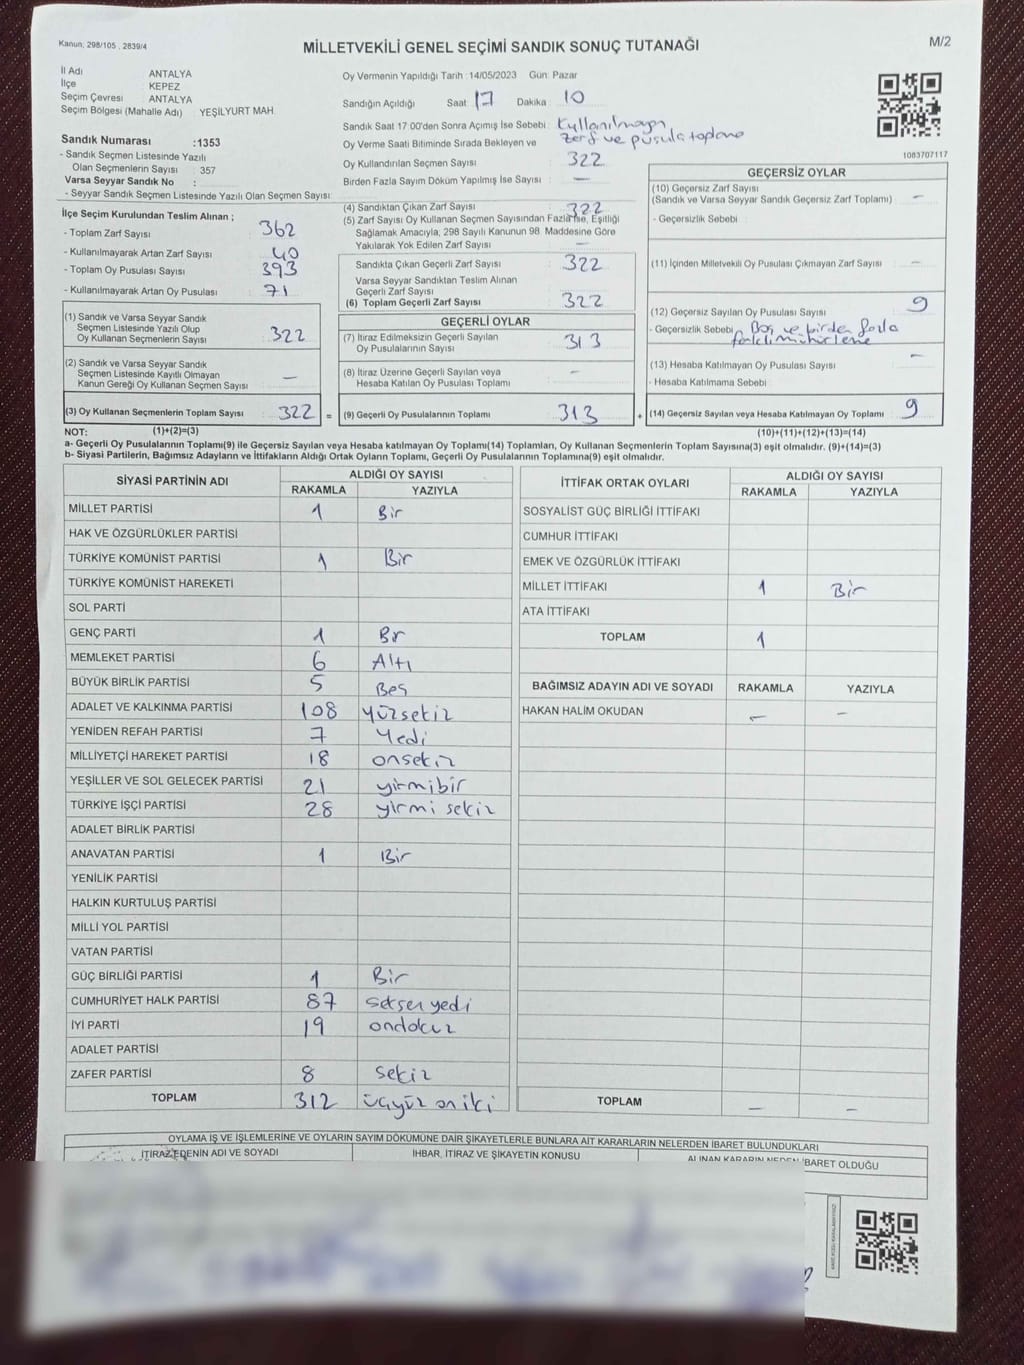 Kanun; 298/105 , 2839/4
MİLLETVEKİLİ GENEL SEÇİMİ SANDIK SONUÇ TUTANAĞI
M/2
İl Adı ANTALYA
İlçe KEPEZ
Seçim Çevresi ANTALYA
Seçim Bölgesi (Mahalle Adı) YEŞİLYURT MAH.
Sandık Numarası :1353
- Sandık Seçmen Listesinde Yazılı
Olan Seçmenlerin Sayısı : 357
Varsa Seyyar Sandık No :
- Seyyar Sandık Seçmen Listesinde Yazılı Olan Seçmen Sayısı:
İlçe Seçim Kurulundan Teslim Alınan ;
- Toplam Zarf Sayısı 362
- Kullanılmayarak Artan Zarf Sayısı 40
- Toplam Oy Pusulası Sayısı 393
- Kullanılmayarak Artan Oy Pusulası 71
(1) Sandık ve Varsa Seyyar Sandık
Seçmen Listesinde Yazılı Olup
Oy Kullanan Seçmenlerin Sayısı 322
(2) Sandık ve Varsa Seyyar Sandık
Seçmen Listesinde Kayıtlı Olmayan
Kanun Gereği Oy Kullanan Seçmen Sayısı —
(3) Oy Kullanan Seçmenlerin Toplam Sayısı 322 =
Oy Vermenin Yapıldığı Tarih : 14/05/2023 Gün: Pazar
Sandığın Açıldığı Saat 17 Dakika : 10
Sandık Saat 17:00'den Sonra Açılmış İse Sebebi : Kullanılmayan
Oy Verme Saati Bitiminde Sırada Bekleyen ve zarf ve pusula toplama
Oy Kullandırılan Seçmen Sayısı : 322
Birden Fazla Sayım Döküm Yapılmış İse Sayısı : —
(4) Sandıktan Çıkan Zarf Sayısı 322
(5) Zarf Sayısı Oy Kullanan Seçmen Sayısından Fazla ise, Eşitliği
Sağlamak Amacıyla, 298 Sayılı Kanunun 98. Maddesine Göre
Yakılarak Yok Edilen Zarf Sayısı —
Sandıkta Çıkan Geçerli Zarf Sayısı 322
Varsa Seyyar Sandıktan Teslim Alınan
Geçerli Zarf Sayısı
(6) Toplam Geçerli Zarf Sayısı 322
GEÇERLİ OYLAR
(7) İtiraz Edilmeksizin Geçerli Sayılan
Oy Pusulalarının Sayısı 313
(8) İtiraz Üzerine Geçerli Sayılan veya
Hesaba Katılan Oy Pusulası Toplamı —
(9) Geçerli Oy Pusulalarının Toplamı 313 +
1083707117
GEÇERSİZ OYLAR
(10) Geçersiz Zarf Sayısı
(Sandık ve Varsa Seyyar Sandık Geçersiz Zarf Toplamı) —
- Geçersizlik Sebebi :
(11) İçinden Milletvekili Oy Pusulası Çıkmayan Zarf Sayısı —
(12) Geçersiz Sayılan Oy Pusulası Sayısı 9
- Geçersizlik Sebebi : Boş ve birden fazla
farklı mühürleme
(13) Hesaba Katılmayan Oy Pusulası Sayısı —
- Hesaba Katılmama Sebebi :
(14) Geçersiz Sayılan veya Hesaba Katılmayan Oy Toplamı 9
NOT: (1)+(2)=(3) (10)+(11)+(12)+(13)=(14)
a- Geçerli Oy Pusulalarının Toplamı(9) ile Geçersiz Sayılan veya Hesaba katılmayan Oy Toplamı(14) Toplamları, Oy Kullanan Seçmenlerin Toplam Sayısına(3) eşit olmalıdır. (9)+(14)=(3)
b- Siyasi Partilerin, Bağımsız Adayların ve İttifakların Aldığı Ortak Oyların Toplamı, Geçerli Oy Pusulalarının Toplamına(9) eşit olmalıdır.
SİYASİ PARTİNİN ADI ALDIĞI OY SAYISI
RAKAMLA YAZIYLA
MİLLET PARTİSİ 1 Bir
HAK VE ÖZGÜRLÜKLER PARTİSİ
TÜRKİYE KOMÜNİST PARTİSİ 1 Bir
TÜRKİYE KOMÜNİST HAREKETİ
SOL PARTİ
GENÇ PARTİ 1 Bir
MEMLEKET PARTİSİ 6 Altı
BÜYÜK BİRLİK PARTİSİ 5 Beş
ADALET VE KALKINMA PARTİSİ 108 yüzsekiz
YENİDEN REFAH PARTİSİ 7 Yedi
MİLLİYETÇİ HAREKET PARTİSİ 18 onsekiz
YEŞİLLER VE SOL GELECEK PARTİSİ 21 yirmibir
TÜRKİYE İŞÇİ PARTİSİ 28 yirmi sekiz
ADALET BİRLİK PARTİSİ
ANAVATAN PARTİSİ 1 Bir
YENİLİK PARTİSİ
HALKIN KURTULUŞ PARTİSİ
MİLLİ YOL PARTİSİ
VATAN PARTİSİ
GÜÇ BİRLİĞİ PARTİSİ 1 Bir
CUMHURİYET HALK PARTİSİ 87 seksen yedi
İYİ PARTİ 19 ondokuz
ADALET PARTİSİ
ZAFER PARTİSİ 8 sekiz
TOPLAM 312 üçyüz on iki
İTTİFAK ORTAK OYLARI ALDIĞI OY SAYISI
RAKAMLA YAZIYLA
SOSYALİST GÜÇ BİRLİĞİ İTTİFAKI
CUMHUR İTTİFAKI
EMEK VE ÖZGÜRLÜK İTTİFAKI
MİLLET İTTİFAKI 1 Bir
ATA İTTİFAKI
TOPLAM 1
BAĞIMSIZ ADAYIN ADI VE SOYADI RAKAMLA YAZIYLA
HAKAN HALİM OKUDAN — —
TOPLAM — —
OYLAMA İŞ VE İŞLEMLERİNE VE OYLARIN SAYIM DÖKÜMÜNE DAİR ŞİKAYETLERLE BUNLARA AİT KARARLARIN NELERDEN İBARET BULUNDUKLARI
İTİRAZ EDENİN ADI VE SOYADI İHBAR, İTİRAZ VE ŞİKAYETİN KONUSU ALINAN KARARIN NEDEN İBARET OLDUĞU